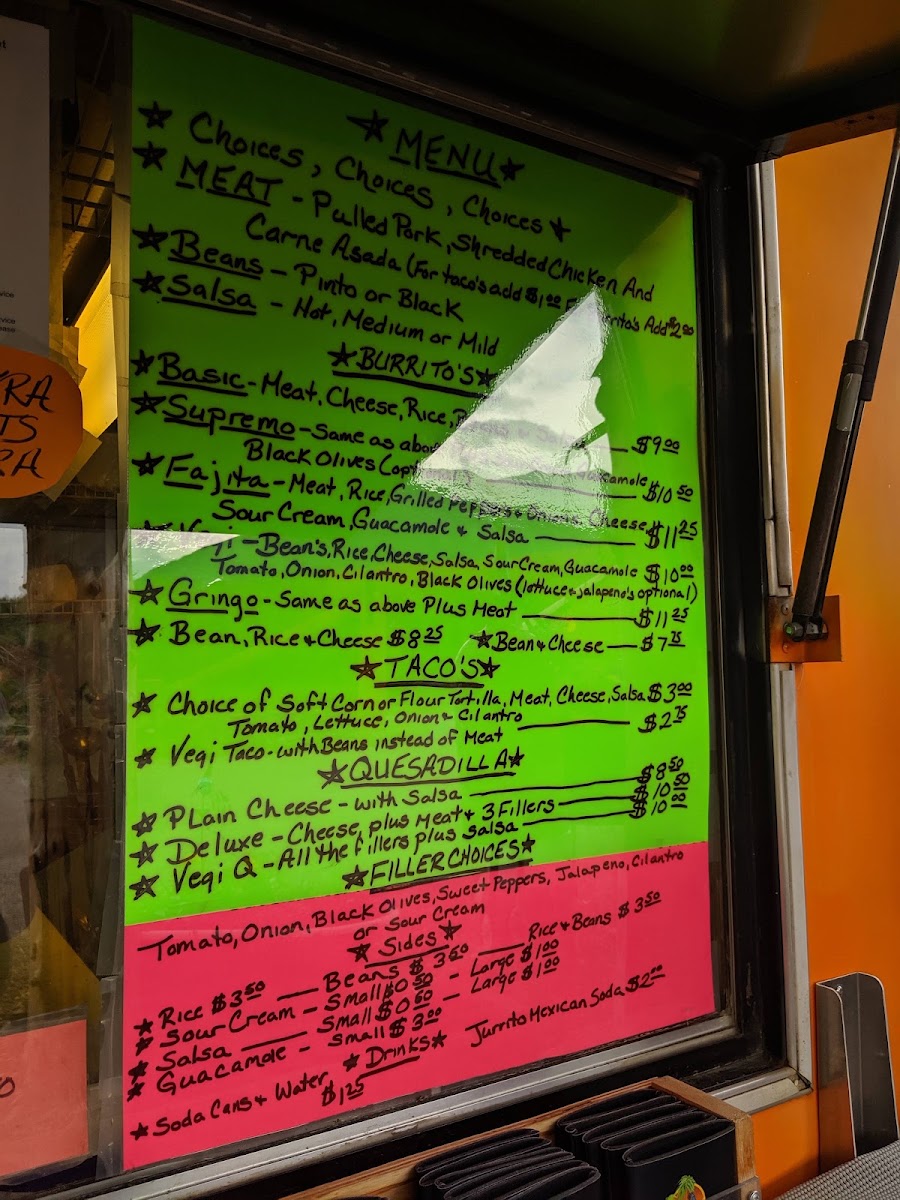 ☆ MENU ☆
☆ Choices, Choices, Choices ☆
☆ MEAT - Pulled Pork, Shredded Chicken And
Carne Asada (For taco's add $1.00 Add $2.00
☆ Beans - Pinto or Black
☆ Salsa - Hot, Medium or Mild
☆ BURRITO'S ☆
☆ Basic - Meat, Cheese, Rice, $9.00
☆ Supremo - Same as above
Black Olives Guacamole $10.50
☆ Fajita - Meat, Rice, Grilled Peppers & Cheese
Sour Cream, Guacamole & Salsa $11.25
- Bean's, Rice, Cheese, Salsa, Sour Cream, Guacamole $10.00
Tomato, Onion, Cilantro, Black Olives (lottuce & jalapeno's optional)
☆ Gringo - Same as above Plus Meat $11.25
☆ Bean, Rice & Cheese $8.25 ☆ Bean & Cheese $7.75
☆ TACO'S ☆
☆ Choice of Soft Corn or Flour Tortilla, Meat, Cheese, Salsa $3.00
Tomato, Lettuce, Onion & Cilantro
☆ Vegi Taco - with Beans instead of Meat $2.75
☆ QUESADILLA ☆
☆ Plain Cheese - with Salsa $8.50
☆ Deluxe - Cheese, plus Meat & 3 Fillers $10.50
☆ Vegi Q - All the fillers plus salsa $10.00
☆ FILLER CHOICES ☆
Tomato, Onion, Black Olives, Sweet Peppers, Jalapeno, Cilantro
or Sour Cream
☆ Sides ☆
☆ Rice $3.50 Beans $3.50 Rice & Beans $3.50
☆ Sour Cream - Small $0.50 - Large $1.00
☆ Salsa Small $0.50 - Large $1.00
☆ Guacamole - Small $3.00
☆ Drinks ☆
☆ Soda Cans & Water $1.25 Jurrito Mexican Soda $2.00